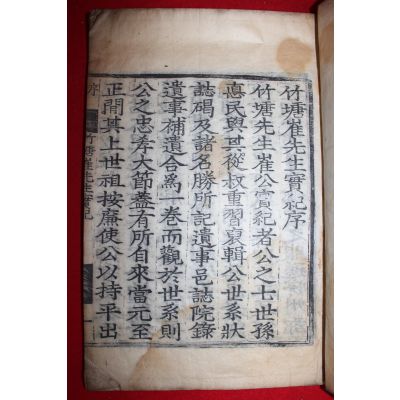 竹塘崔先生實紀序
竹塘先生崔公實紀者公之七世孫
惪民與其從叔重習裒輯公世系狀
誌碣及諸名勝所記遺事邑誌院錄
遺事補遺合爲一卷而觀於世系則
公之忠孝大節蓋有所自來當元至
正間其上世祖按廉使公以持平出
序
竹塘崔先生實紀